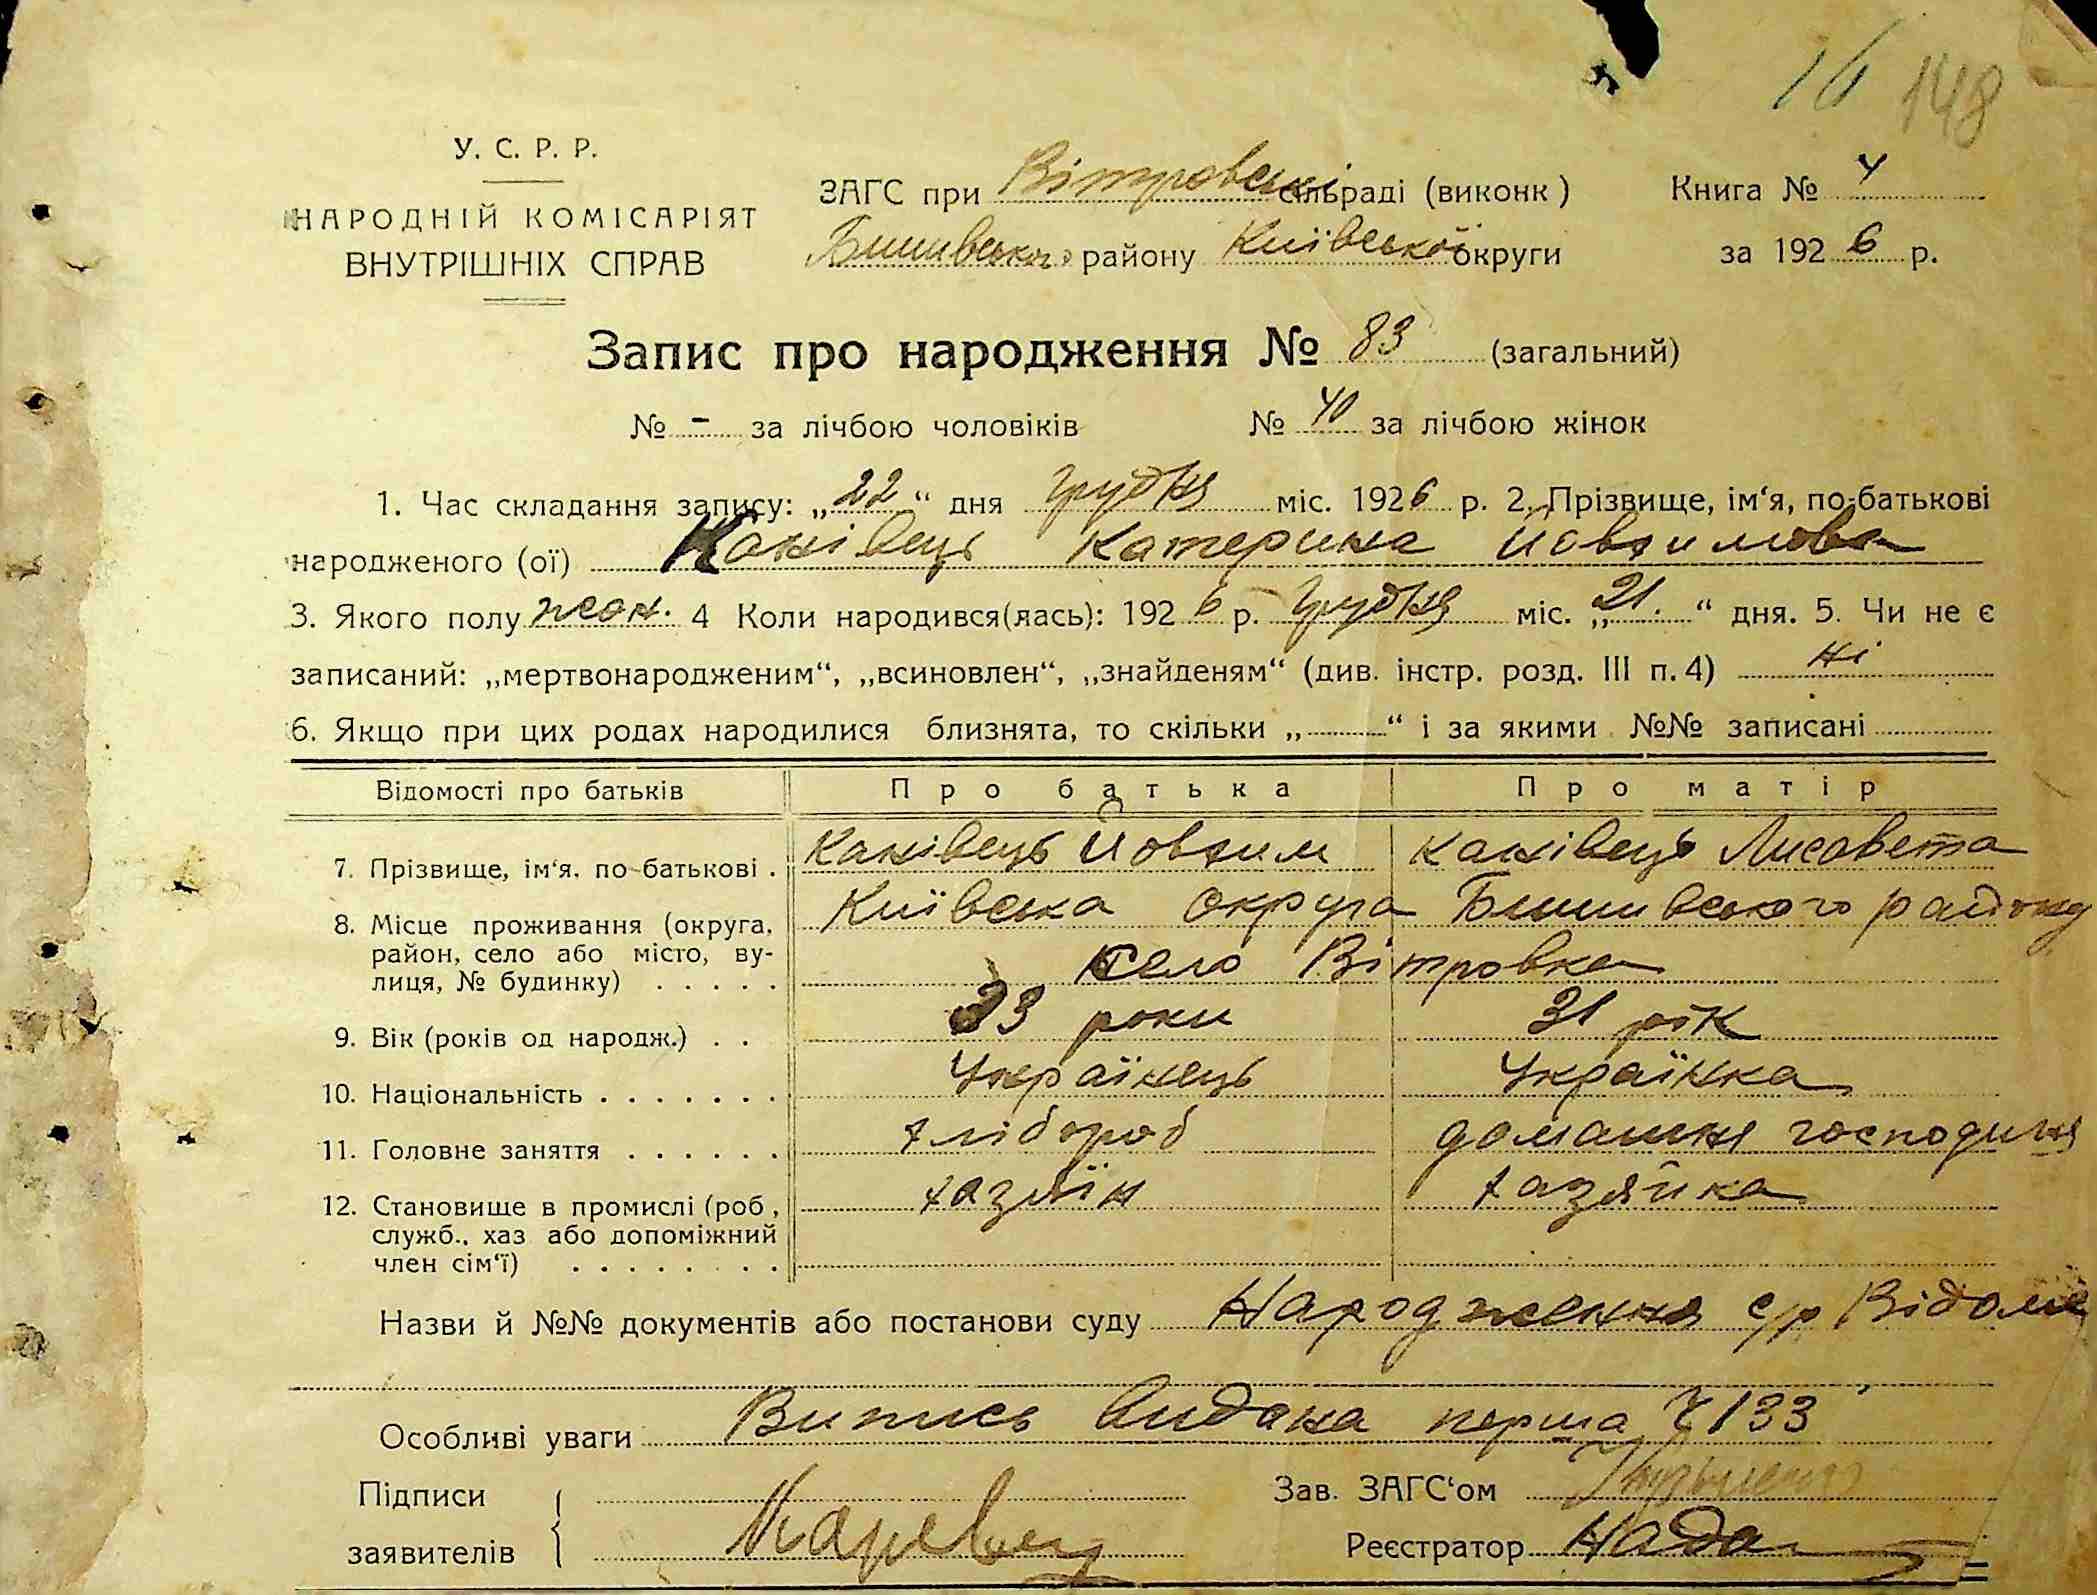 16 148
У. С. Р. Р.
НАРОДНІЙ КОМІСАРІЯТ
ВНУТРІШНІХ СПРАВ
ЗАГС при Вітровські сільраді (виконк) Книга № 4
Бишивського району Київської округи за 1926 р.
Запис про народження № 83 (загальний)
№ - за лічбою чоловіків № 40 за лічбою жінок
1. Час складання запису: „22“ дня Грудня міс. 1926 р. 2. Прізвище, ім‘я, по-батькові
народженого (ої) Канівець Катерина Йовхимова
3. Якого полу жон. 4 Коли народився(лась): 1926 р. Грудня міс. „21.“ дня. 5. Чи не є
записаний: „мертвонародженим“, „всиновлен“, „знайденям“ (див. інстр. розд. III п. 4) ні
6. Якщо при цих родах народилися близнята, то скільки „ “ і за якими №№ записані
Відомості про батьків Про батька Про матір
7. Прізвище, ім‘я, по-батькові . Канівець Йовхим Канівець Лисавета
8. Місце проживання (округа, район, село або місто, вулиця, № будинку) . . . . . Київська округа Бишивського району
село Вітровка
9. Вік (років од народж.) . . 33 роки 31 рік
10. Національність . . . . . . . Українець Українка
11. Головне заняття . . . . . . хлібороб домашня господиня
12. Становище в промислі (роб, служб., хаз або допоміжний член сім‘ї) . . . . . . . . хазяїн хазяйка
Назви й №№ документів або постанови суду Народження с/р Відоме
Особливі уваги Випись видана перша Ч 133
Підписи Зав. ЗАГС‘ом
заявителів Реєстратор